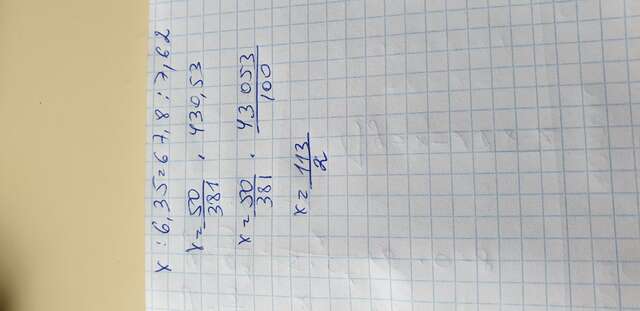 x : 6,35 = 67,8 : 7,62
x = 50/381 · 430,53
x = 50/381 · 43 053/100
x = 113/2